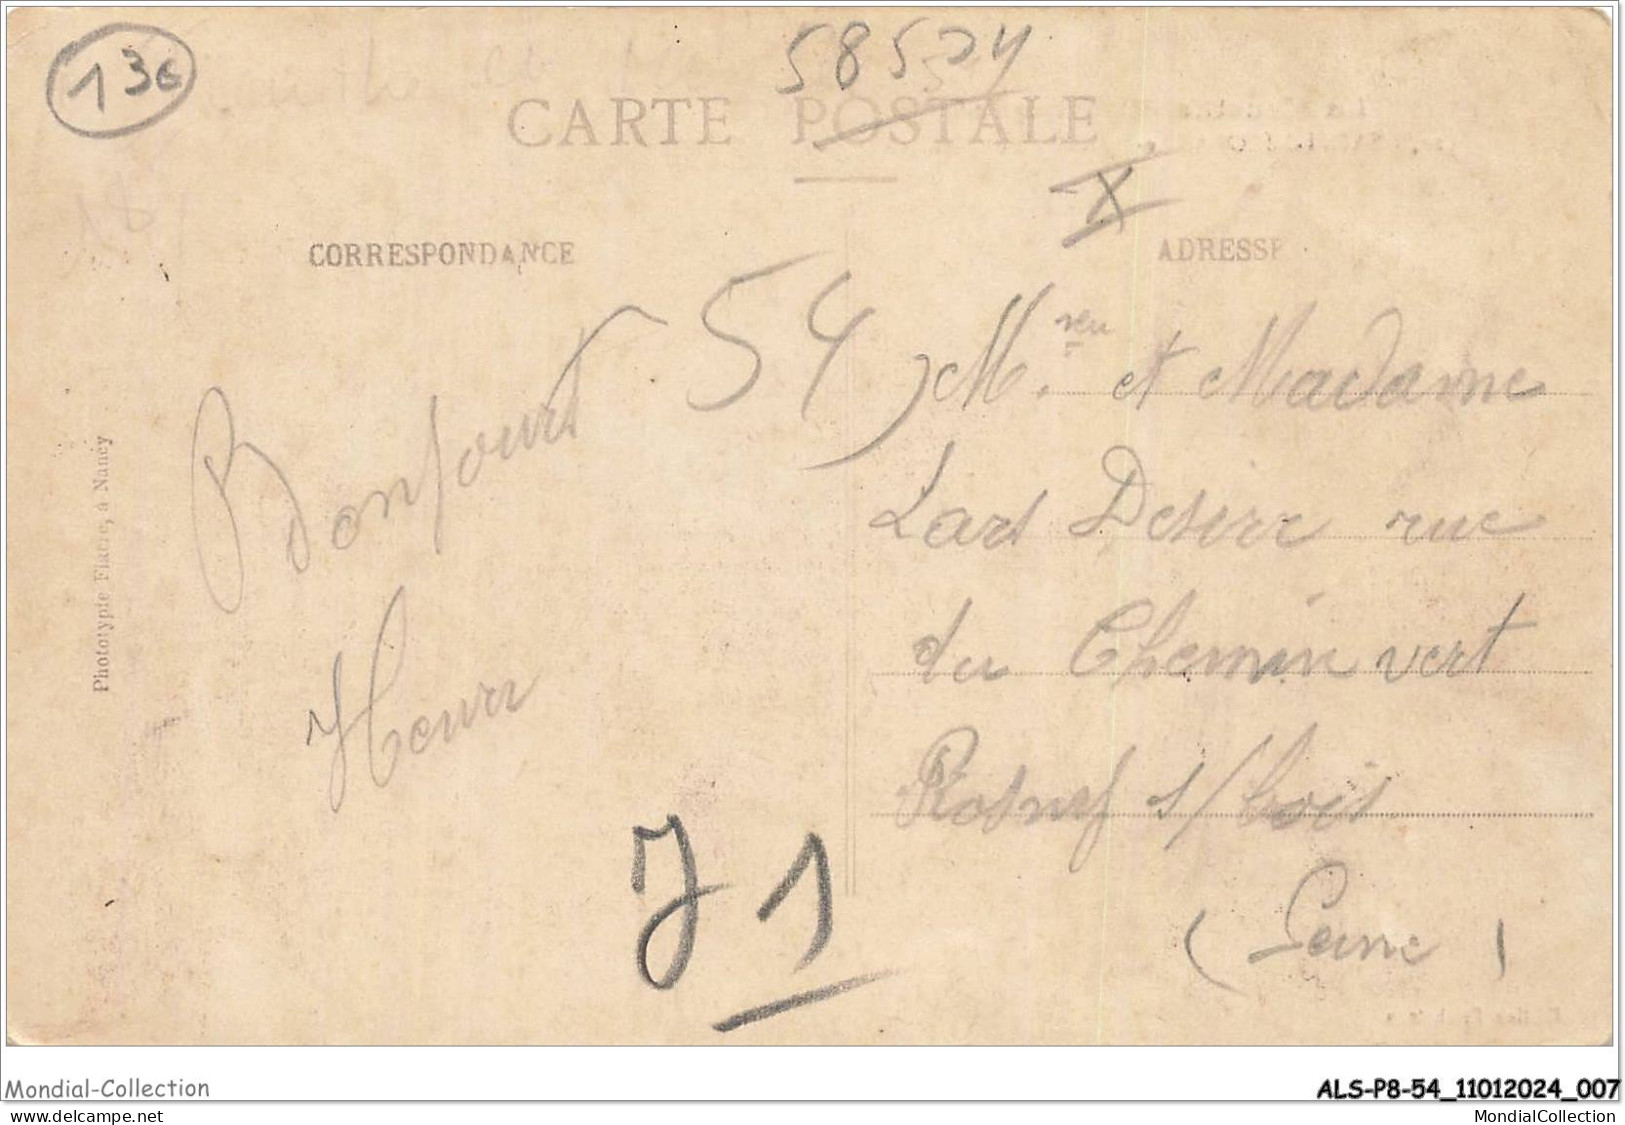 136
58524
CARTE POSTALE
X
CORRESPONDANCE
ADRESSE
54
Bonjourt
Henri
J1
M. et Madame
Lars Desirr rue
du Chemin vert
Rosny s/bois
(Seine)
Phototypie Fiacre, à Nancy
Mondial-Collection
ALS-P8-54_11012024_007
www.delcampe.net
MondialCollection